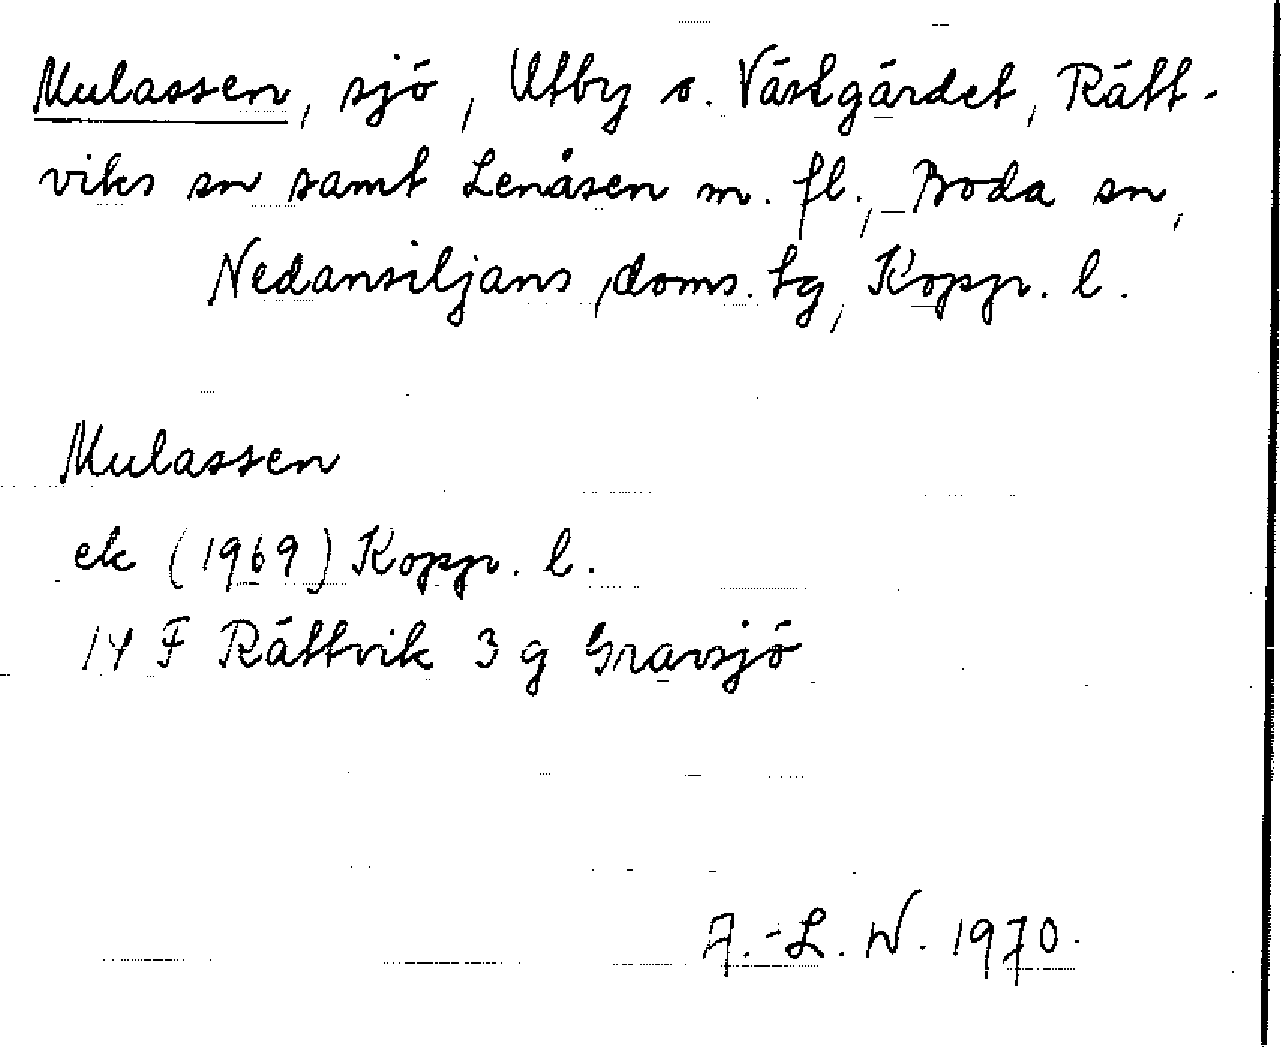 Mulassen, sjö, Utby o. Västgärdet, Rätt-
viks sn samt Lenåsen m. fl., Boda sn,
Nedansiljans doms. tg, Kopp. l.
Mulassen
ek (1969) Kopp. l.
14 F Rättvik 3 g Gravsjö
A.-L. W. 1970.